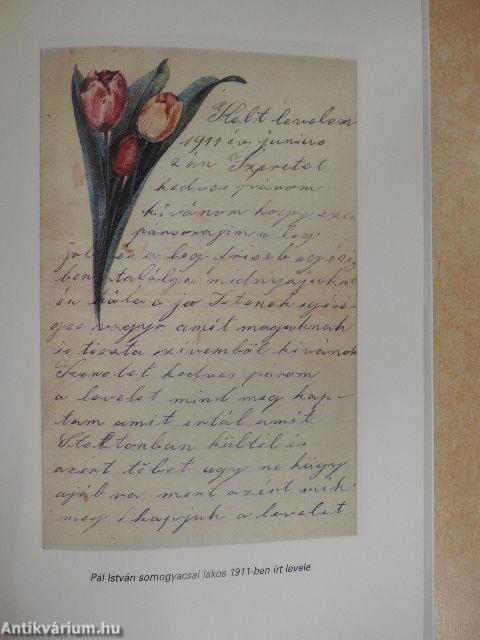 Kelt levelem
1911 év junius
2 án Szeretet
kedves párom
kivánom hogy ezen
pársoraim a leg
jobb és a leg friseb egésé
ben találja midnyájukat
en hála a jo Istenek egésé-
ges vagyo amit maguknak
is tiszta szivemböl kivánok
Szeretet kedves párom
a levelet mind meg kap-
tam amit irtál amit
kültél is
azért töbet ugy ne kügy
ajál va mert azért mik
meg i kapjuk a levelet
Pál István somogyacsai lakos 1911-ben írt levele
Antikvárium.hu